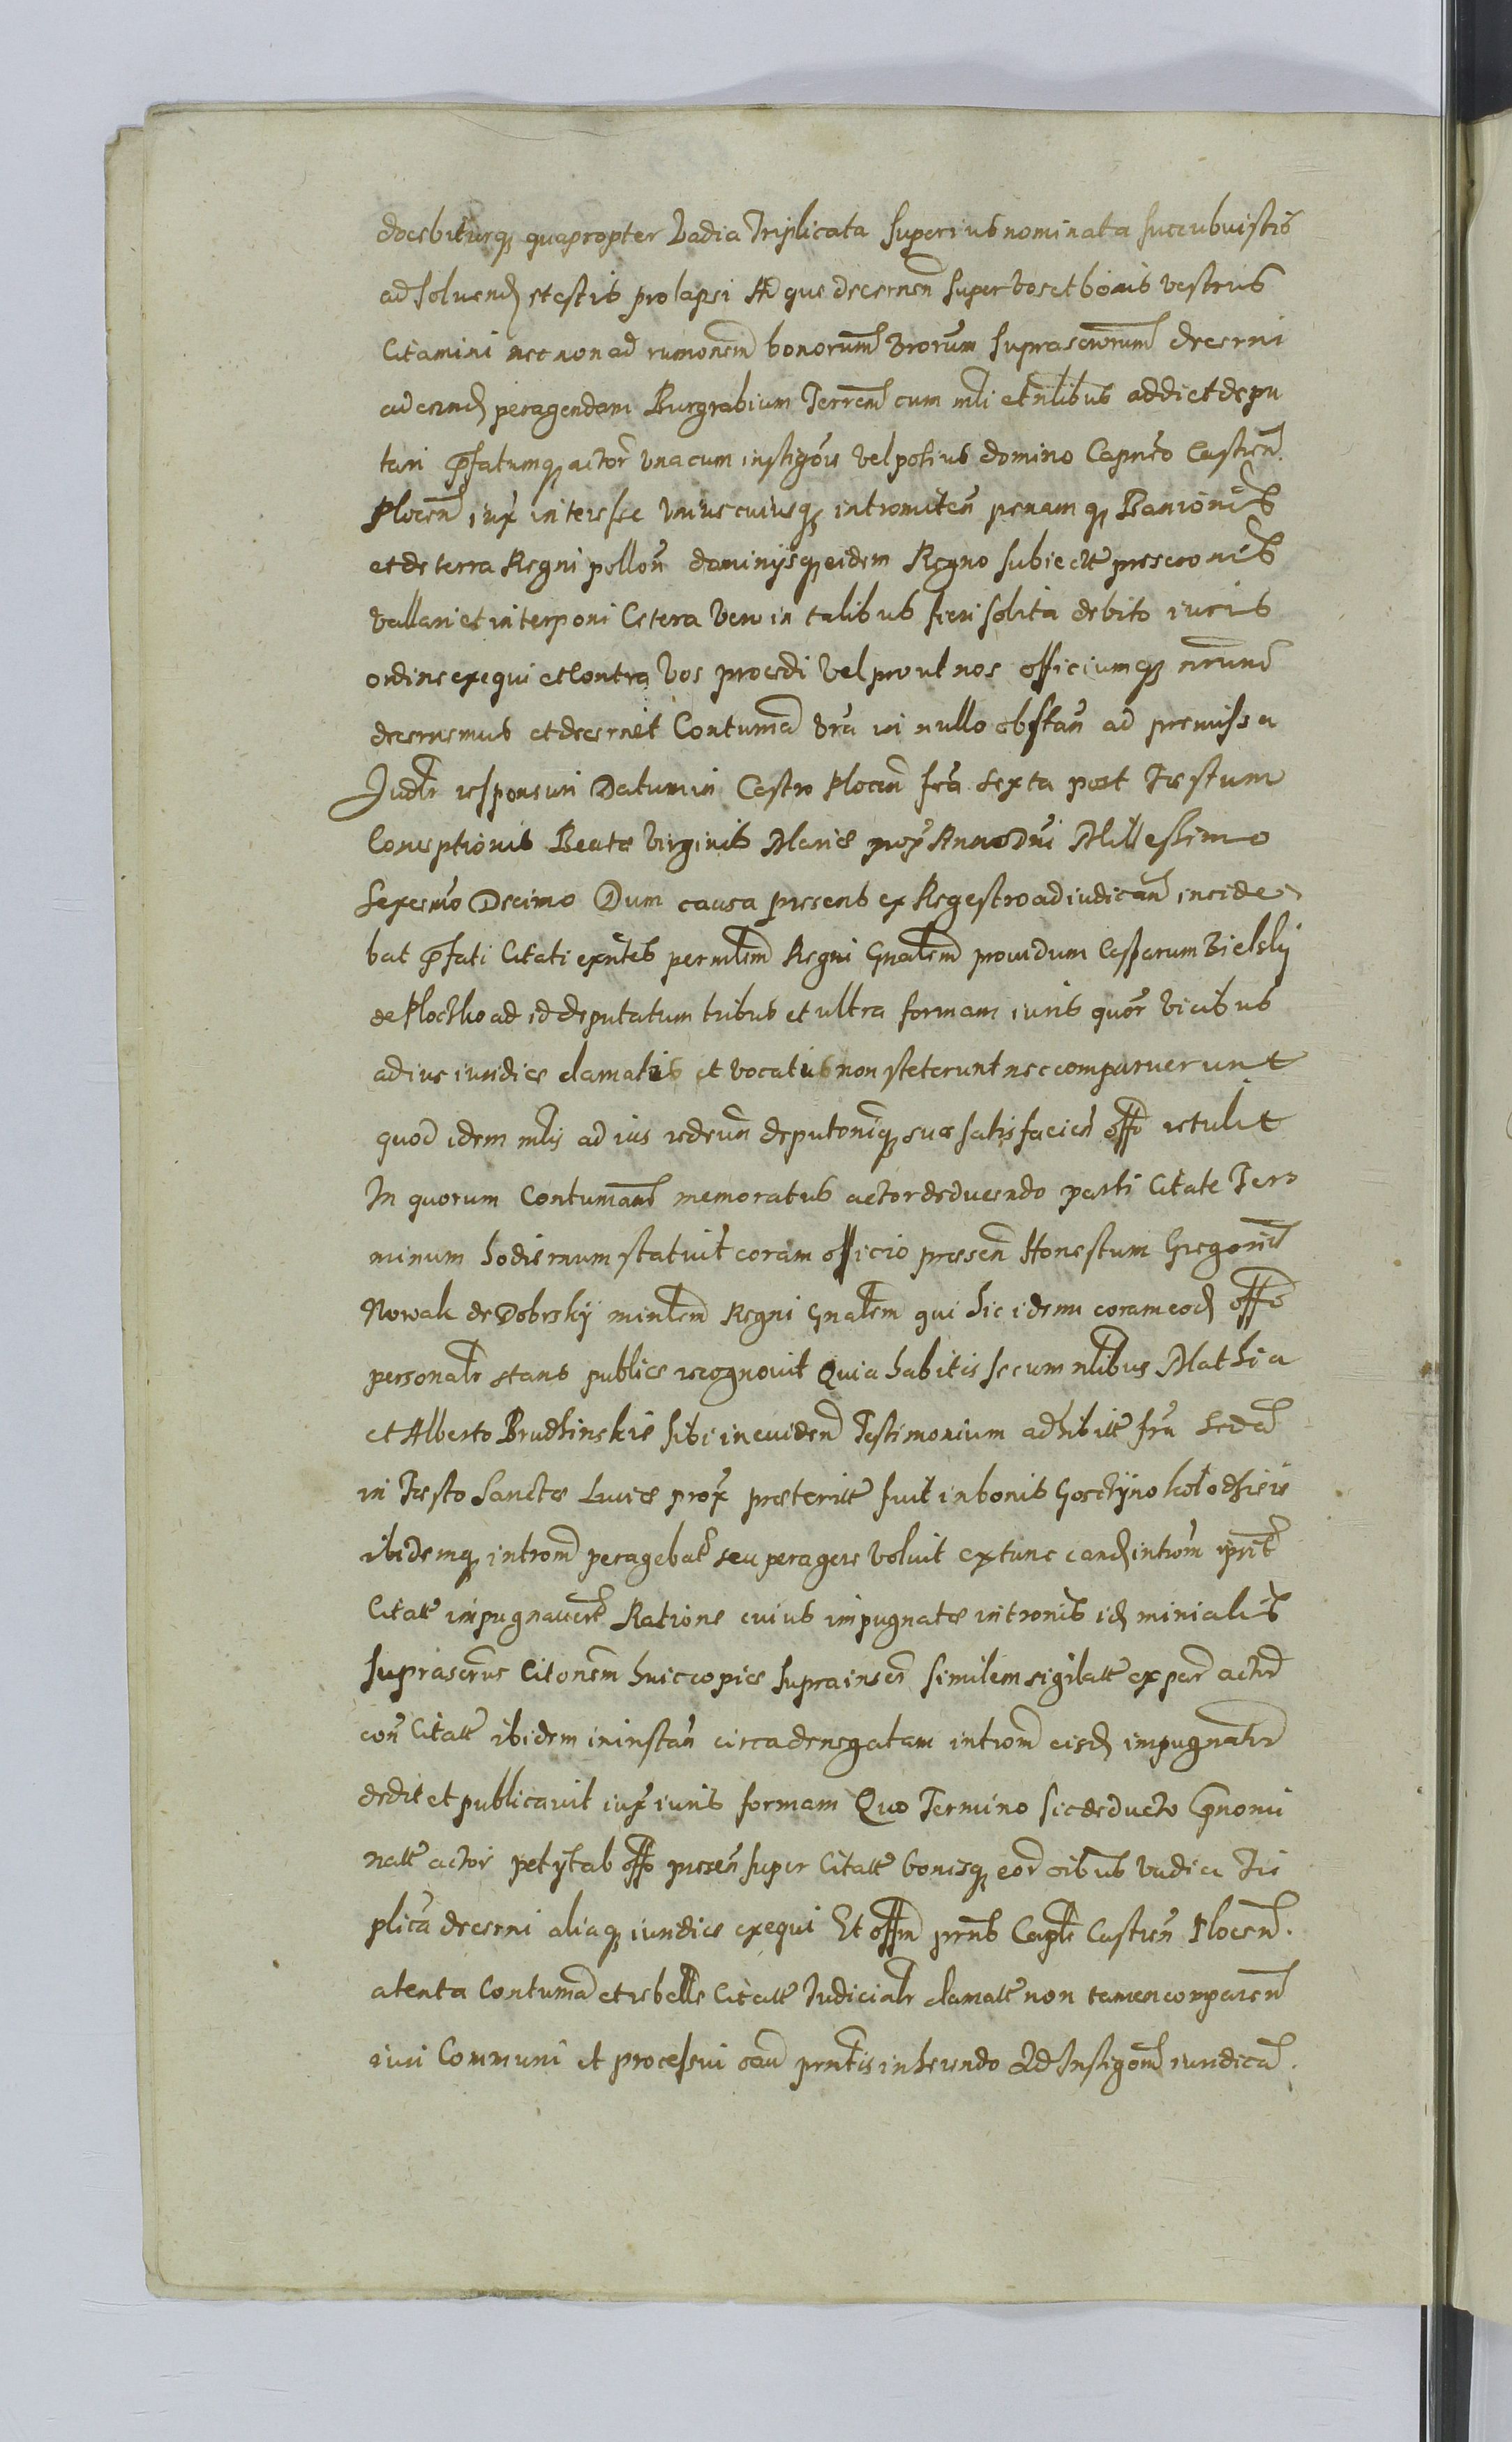 docebiturq quapropter Vadia Triplicata superius nominata succubuistis
ad solvend et estis prolapsi Ad que decernen super vos et bonis vestris
Citamini nec non ad rumonem bonorum vrorum suprascrorum decerni
ad eand peragendam Burgrabium Terrem cum mli et nlibus addi et depu
tari pfatumq actor vna cum instigore vel potius domino Capneo Castren.
Plocen iux interesse vniuscuiusq intromiten penamq Banionis
et de terra Regni pollon dominijsq eidem Regno subiectt prescronis
vallari et interponi Cetera vero in talibus fieri solita debito iuris
ordine exequi et Contra vos procedi vel prout nos officiumq nrum
decernemus et decernet Contuma vra in nullo obstan ad premissa
Judlr responsuri Datum in Castro Plocen fra sexta post Festum
Conceptionis Beatæ Virginis Mariæ prox Anno Dni Millessimo
Sexcemo Decimo Dum causa presens ex Regestro ad iudican incide
bat pfati Citati exntes per mlem Regni Gnalem providum Casparum Bielsky
de Ploczko ad id deputatum tribus et ultra formam iuris quor vicibus
ad ius iuridice clamatis et vocatis non steterunt nec comparuerunt
quod idem mlis ad ius redeun deputoniq suæ satisfacien offo retulit
In quorum Contumam memoratus actor deducendo parti Citate Ter
minum hodiernum statuit coram officio presen Honestum Gregorium
Nowak de Dobrsky minlem Regni Gnalem qui hic idem coram eod offo
personalr stans publice recognovit Quia habitis secum nlibus Mathia
et Alberto Brudzinskie sibi in eviden Testimonium adhibitt fra secda
in Festo Sanctæ Luciæ prox præteritt fuit in bonis Goczyno kołodzieie
ibidemq introm peragebat seu peragere voluit extunc eand introm
Citatt impugnavert Ratione cuius impugnatæ intronis id minialis
suprascrus Citonem huic copiæ supra inser similem sigilatt ex par actor
con Citatt ibidem in instan circa denegatam introm eisd impugnator
dedit et publicavit iux iuris formam Quo Termino sic deducto pnomi
natt actor petyt ab offo presen super Citatt bonisq eor oibus vadia Tri
plica decerni aliaq iuridice exequi Et offm prns Caple Castren Plocen.
atenta Contuma et rebelle Citatt Judicialr clamatt non tamen comparen
iuri Communi et processui cau prntis inherendo Ad Instigom iuridica.